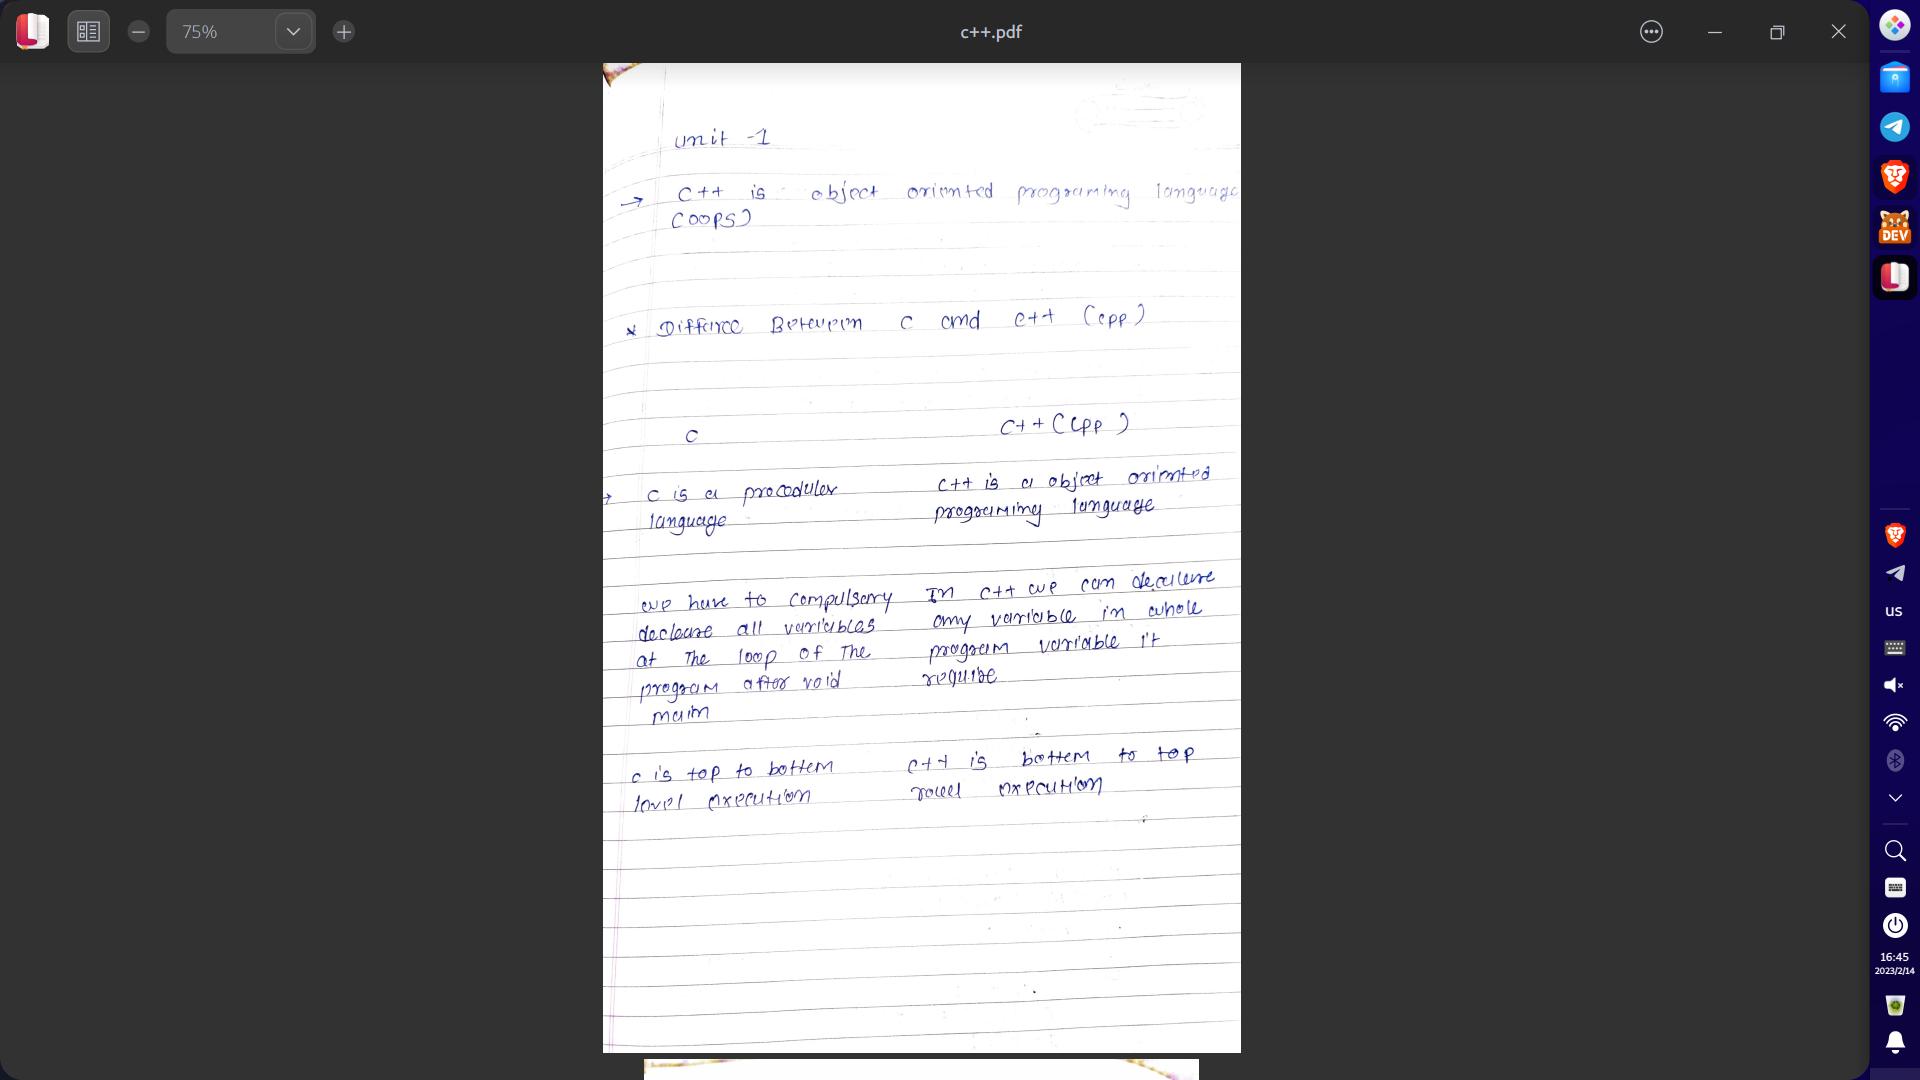 75%
c++.pdf
unit -1
→ C++ is object orinnted programing language
(OOPS)
* Differce Between C and C++ (cpp)
C C++ (Cpp)
→ C is a procoduler
language
C++ is a object orinnted
programing language
we have to compulsary
decleare all variables
at The loop of The
program after void
main
In C++ we can decalere
any variable in whole
program variable it
require
C is top to bottem
level execution
C++ is bottem to top
execution
DEV
us
16:45
2023/2/14